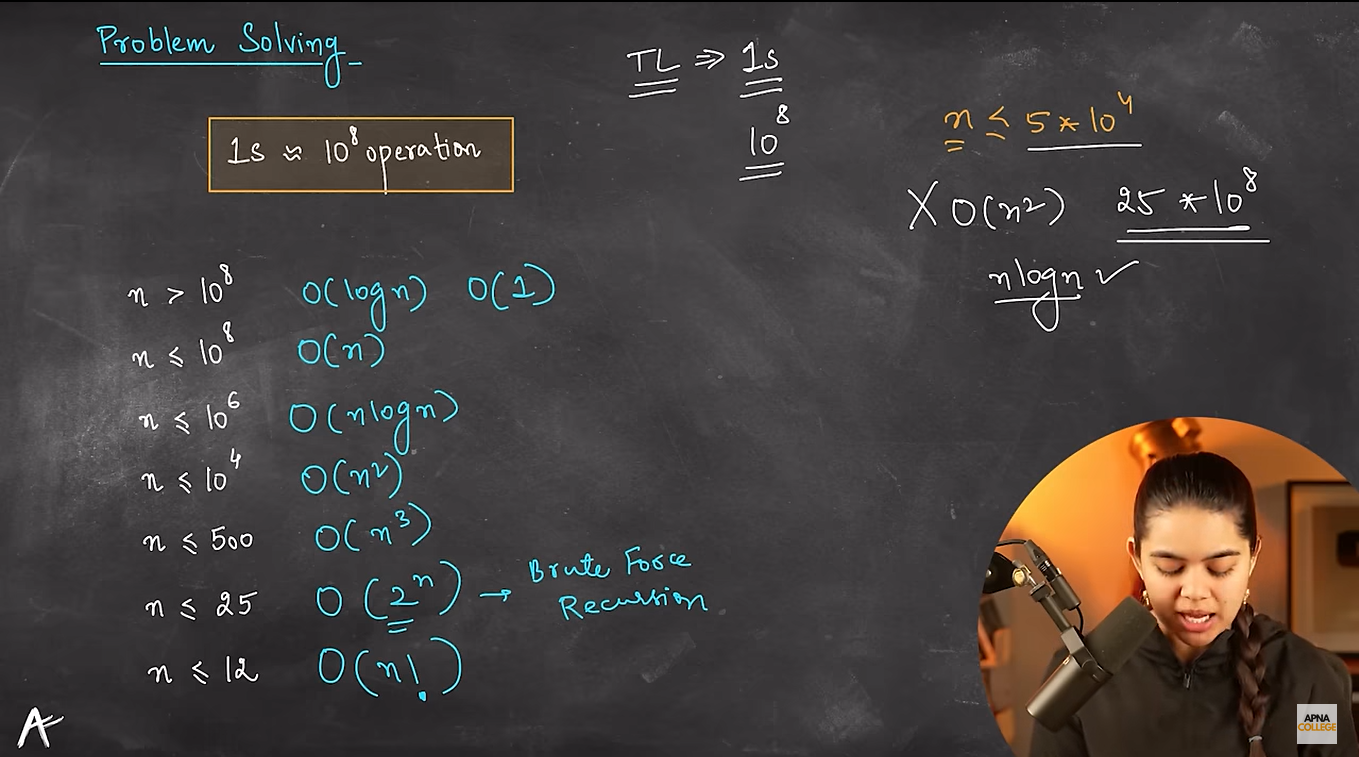 Problem Solving
1s ≈ 10⁸ operation
TL ⇒ 1s
10⁸
n ≤ 5*10⁴
X O(n²) 25 * 10⁸
nlogn ✓
n > 10⁸ O(logn) O(1)
n ≤ 10⁸ O(n)
n ≤ 10⁶ O(nlogn)
n ≤ 10⁴ O(n²)
n ≤ 500 O(n³)
n ≤ 25 O(2ⁿ) → Brute Force
Recursion
n ≤ 12 O(n!)
A
APNA
COLLEGE